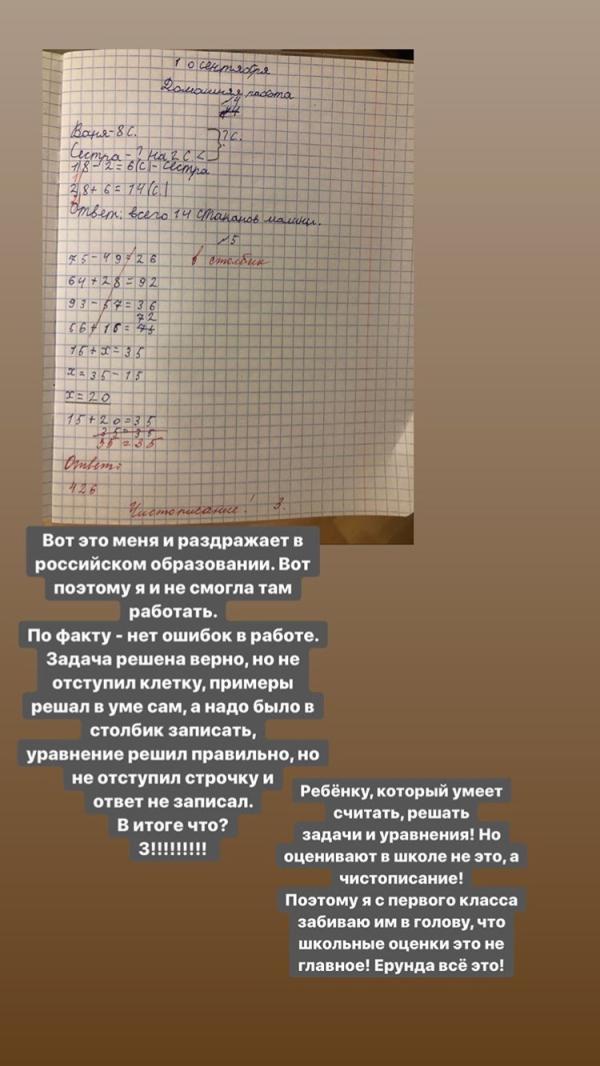 10 сентября
Домашняя работа
№4
Ваня - 8 с.
Сестра - ? на 2 с. <
?с.
1) 8 - 2 = 6(с) - сестра
2) 8 + 6 = 14(с)
Ответ: всего 14 стаканов малины.
№5
75 - 49 = 26
в столбик
64 + 28 = 92
93 - 57 = 36
72
56 + 16 = 73
15 + x = 35
x = 35 - 15
x = 20
15 + 20 = 35
35 = 35
35 = 35
Ответ:
426
Чистописание! 3.
Вот это меня и раздражает в
российском образовании. Вот
поэтому я и не смогла там
работать.
По факту - нет ошибок в работе.
Задача решена верно, но не
отступил клетку, примеры
решал в уме сам, а надо было в
столбик записать,
уравнение решил правильно, но
не отступил строчку и
ответ не записал.
В итоге что?
3!!!!!!!!!
Ребёнку, который умеет
считать, решать
задачи и уравнения! Но
оценивают в школе не это, а
чистописание!
Поэтому я с первого класса
забиваю им в голову, что
школьные оценки это не
главное! Ерунда всё это!